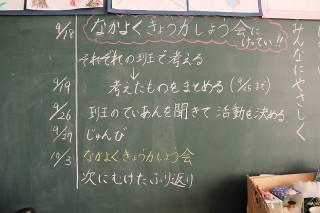 9/18 なかよくきょうかしょう会に
けってい!!
それぞれの班で考える
↓
9/19 考えたものをまとめる(9/25まで)
9/26 班のていあんを聞きて活動を決める
9/27 じゅんび
10/3 なかよくきょうかしょう会
次にむけたふり返り
みんなにやさしく